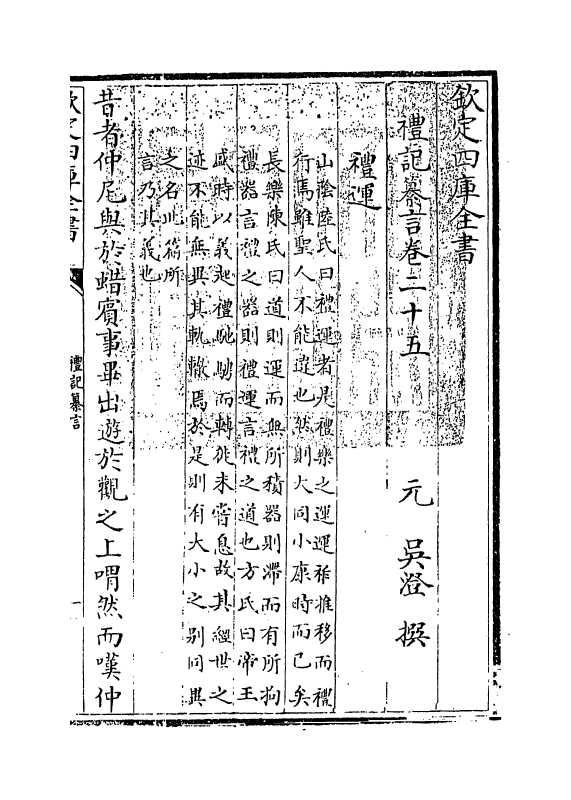 欽定四庫全書
禮記纂言卷二十五　元　吳澄　撰
禮運
山陰陸氏曰禮運者是禮樂之運運祚推移而禮
行焉雖聖人不能違也然則大同小康時而已矣
長樂陳氏曰道則運而無所積器則滯而有所拘
禮器言禮之器則禮運言禮之道也方氏曰帝王
時以義起禮馳騁而轉徙未嘗息故其經世之
迹不能無異其軌轍焉於是則有大小之别同異
之名此篇所
言乃其義也
昔者仲尼與於蜡賓事畢出遊於觀之上喟然而嘆仲
欽定四庫全書
禮記纂言
一